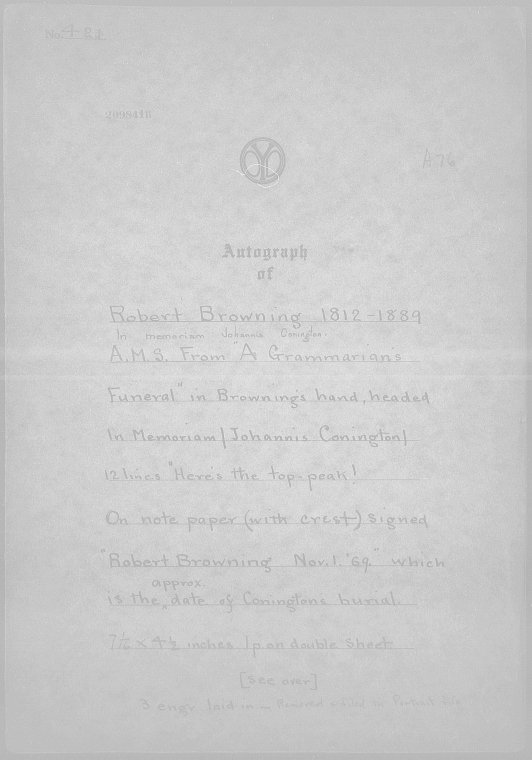 No. 421
209841B
A76
Autograph
of
Robert Browning 1812-1889
In memoriam Johannis Conington.
A.M.S. From "A Grammarians
Funeral" in Browning's hand, headed
In Memoriam/Johannis Conington/
12 lines "Here's the top-peak!
On note paper (with crest) signed
"Robert Browning Nov. 1. '69." which
approx.
is the date of Conington's burial.
inches 1p on double sheet
[see over]
3 engr. laid in - Removed